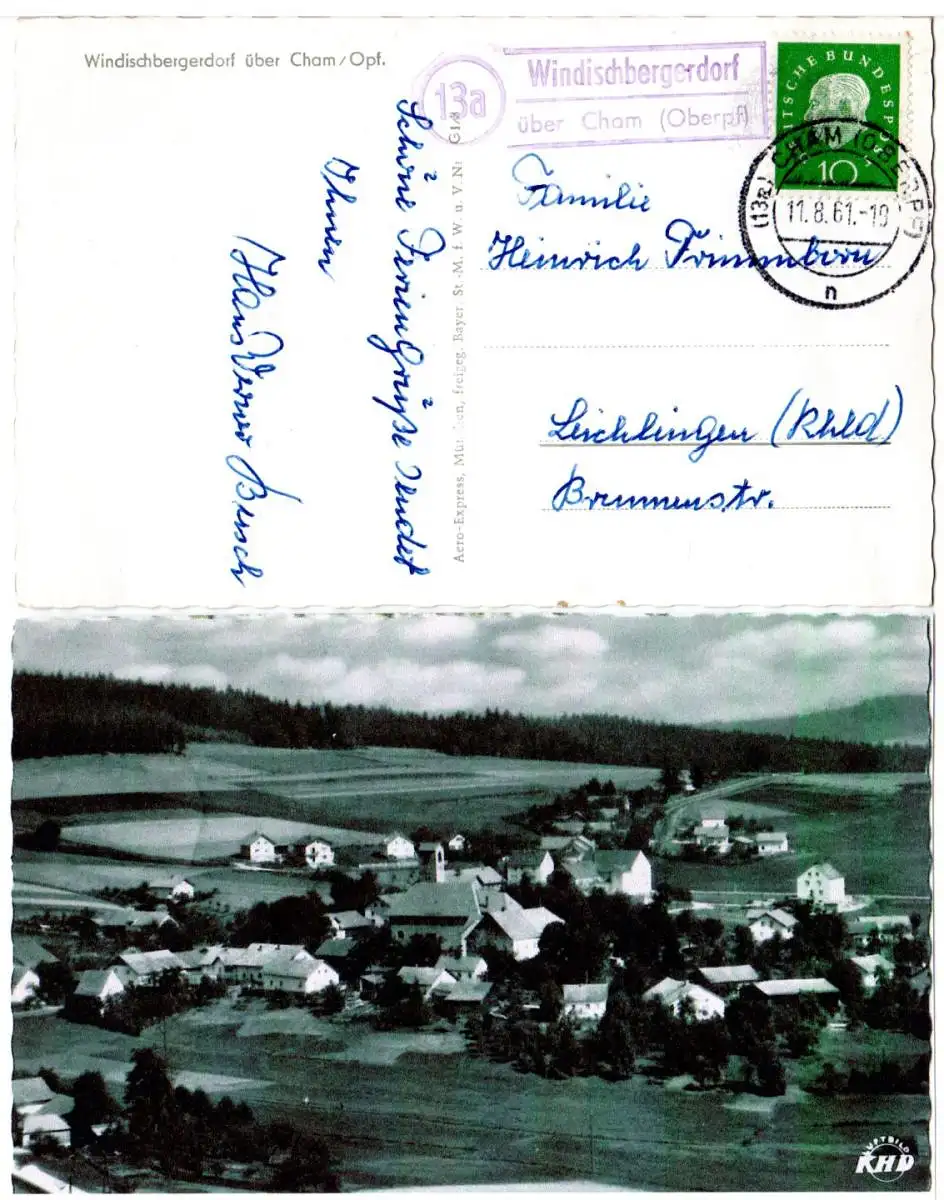 Windischbergerdorf über Cham/Opf.
13a
Windischbergerdorf
über Cham (Oberpf)
DEUTSCHE BUNDESPOST
10
(13a) CHAM (OBERPF)
11.8.61.-19
n
Familie
Heinrich Trimmborn
Leichlingen (Rhld)
Brunnenstr.
Schöne Feriengrüße sendet
Ihnen
Hans Werner Busch
Aero-Express, München, freigeg. Bayer. St.-M. f. W. u. V. Nr.
LUFTBILD
KHD